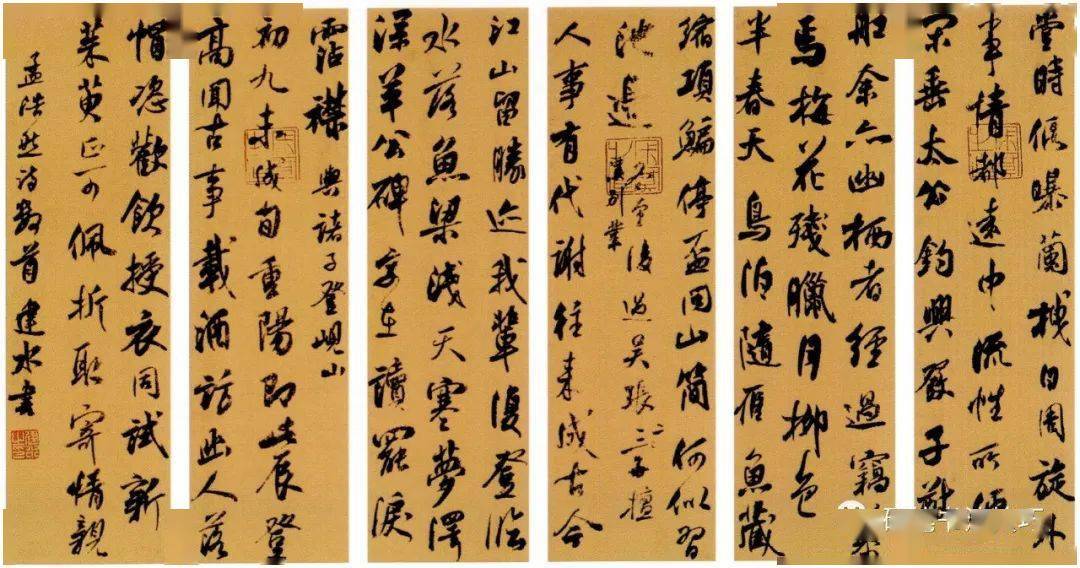 堂時偃曝蘭枻日周旋外
事情都遠中流性所便
閑垂太公釣興發子猷
船余亦幽栖者經過竊慕
焉梅花殘臘月柳色
半春天鳥泊隨雁魚藏
縮項鯿停盃問山簡何似習
池邊 冬至後過吳張二子檀
溪別業
人事有代謝往來成古今
江山留勝迹我輩復登臨
水落魚梁淺天寒夢澤
深羊公碑字在讀罷淚
霑襟 與諸子登峴山
初九未成旬重陽即此辰登
高聞古事載酒訪幽人落
帽恣歡飲授衣同試新
茱萸正可佩折取寄情親
孟浩然詩數首建水書